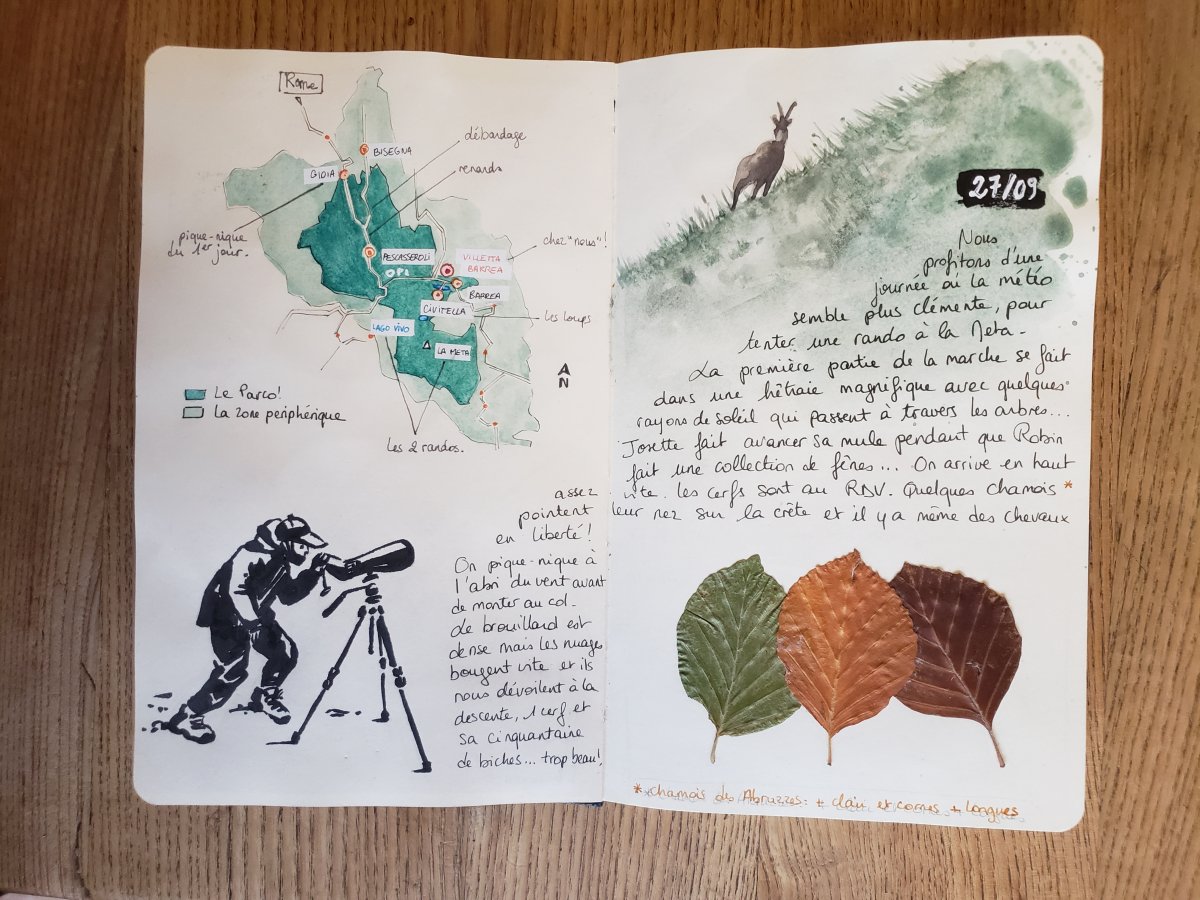 Rome
débardage
BISEGNA
renards
GIOIA
pique-nique
du 1er jour.
chez "nous"!
PESCASSEROLI
VILLETTA
BARREA
OPI
BARREA
CIVITELLA
les loups
LAGO VIVO
LA META
N
Le Parco!
La zone periphérique
les 2 randos.
assez
pointent
en liberté!
On pique-nique à
l'abri du vent avant
de monter au col.
Le brouillard est
dense mais les nuages
bougent vite et ils
nous dévoilent à la
descente, 1 cerf et
sa cinquantaine
de biches... trop beau!
27/09
Nous
profitons d'une
journée où la météo
semble plus clémente, pour
tenter une rando à la Meta.
La première partie de la marche se fait
dans une hêtraie magnifique avec quelques
rayons de soleil qui passent à travers les arbres...
Josette fait avancer sa mule pendant que Robin
fait une collection de fênes... On arrive en haut
vite. Les cerfs sont au RDV. Quelques chamois *
leur nez sur la crête et il y a même des chevaux
* chamois des Abruzzes: + clair et cornes + longues